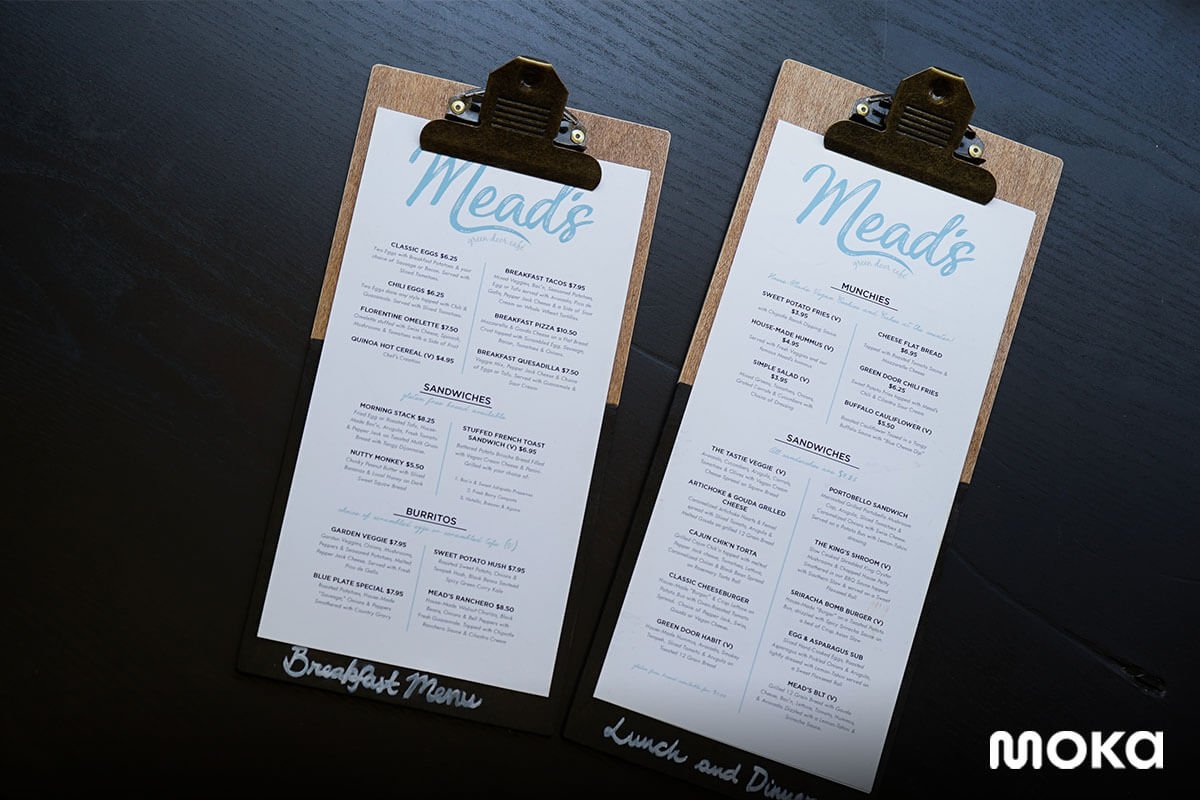 Mead's
green door cafe
CLASSIC EGGS $6.25
Two Eggs with Breakfast Potatoes & your
choice of Sausage or Bacon. Served with
Sliced Tomatoes.
CHILI EGGS $6.25
Two Eggs done any style topped with Chili &
Guacamole. Served with Sliced Tomatoes.
FLORENTINE OMELETTE $7.50
Omelette stuffed with Swiss Cheese, Spinach,
Mushrooms & Tomatoes with a Side of Fruit
QUINOA HOT CEREAL (V) $4.95
Chef's Creation
BREAKFAST TACOS $7.95
Mixed Veggies, Bac'n, Seasoned Potatoes,
Egg or Tofu served with Avocado, Pico de
Gallo, Pepper Jack Cheese & a Side of Sour
Cream on Whole Wheat Tortillas.
BREAKFAST PIZZA $10.50
Mozzarella & Gouda Cheese on a Flat Bread
Crust topped with Scrambled Egg, Sausage,
Bacon, Tomatoes & Onions.
BREAKFAST QUESADILLA $7.50
Veggie mix, Pepper Jack Cheese & Choice
of Eggs or Tofu. Served with Guacamole &
Sour Cream
SANDWICHES
gluten free bread available
MORNING STACK $8.25
Fried Egg or Roasted Tofu, House-
Made Bac'n, Arugula, Fresh Tomato
& Pepper Jack on Toasted Multi Grain
Bread with Tangy Dijonnaise.
NUTTY MONKEY $5.50
Chunky Peanut Butter with Sliced
Bananas & Local Honey on Dark
Sweet Squaw Bread
STUFFED FRENCH TOAST
SANDWICH (V) $6.95
Battered Potato Brioche Bread Filled
with Vegan Cream Cheese & Panini-
Grilled with your choice of:
1. Bac'n & Sweet Jalapeño Preserve
2. Fresh Berry Compote
3. Nutella, Banana & Agave
BURRITOS
choice of scrambled eggs or scrambled tofu (v)
GARDEN VEGGIE $7.95
Garden Veggies, Onions, Mushrooms,
Peppers & Seasoned Potatoes, Melted
Pepper Jack Cheese, Served with Fresh
Pico de Gallo
BLUE PLATE SPECIAL $7.95
Roasted Potatoes, House-Made
"Sausage," Onions & Peppers
Smothered with Country Gravy
SWEET POTATO HUSH $7.95
Roasted Sweet Potato, Onions &
Tomato Hash, Black Beans Sautéed
Spicy Green Curry Kale
MEAD'S RANCHERO $8.50
House-Made Walnut Chorizo, Black
Beans, Onions & Bell Peppers with
Fresh Guacamole. Topped with Chipotle
Ranchero Sauce & Cilantro Creme
Breakfast Menu
Mead's
green door cafe
MUNCHIES
SWEET POTATO FRIES (V)
$3.95
with Chipotle Ranch Dipping Sauce
HOUSE-MADE HUMMUS (V)
$4.95
Served with Fresh Veggies and our
Famous Mead's hummus
SIMPLE SALAD (V)
$3.95
Mixed Greens, Tomatoes, Onions,
Grated Carrots & Cucumbers with
Choice of Dressing
CHEESE FLAT BREAD
$6.95
Topped with Roasted Tomato Sauce &
Mozzarella Cheese
GREEN DOOR CHILI FRIES
$6.25
Sweet Potato Fries topped with Mead's
Chili & Cilantro Sour Cream
BUFFALO CAULIFLOWER (V)
$5.50
Roasted Cauliflower Tossed in a Tangy
Buffalo Sauce with "Blue Cheese Dip"
SANDWICHES
All sandwiches are
THE TASTIE VEGGIE (V)
Avocado, Cucumbers, Arugula, Carrots,
Tomatoes & Olives with Vegan Cream
Cheese Spread on Squaw Bread
ARTICHOKE & GOUDA GRILLED
CHEESE
Caramelized Artichoke Hearts & Fennel
spread with Sliced Tomato, Arugula &
Melted Gouda on grilled 12 Grain Bread
CAJUN CHIK'N TORTA
Grilled Cajun Chik'n topped with melted
Pepper Jack cheese, Tomatoes, Lettuce,
Caramelized Onion & Black Bean Spread
on Rosemary Torta Roll
CLASSIC CHEESEBURGER
House-Made "Burger" & Crisp Lettuce on
Potato Bun with Oven-Roasted Tomato
Spread. Choice of Pepper Jack, Swiss,
Gouda or Vegan Cheese.
GREEN DOOR HABIT (V)
House-Made Hummus, Avocado, Smokey
Tempeh, Sliced Tomato & Arugula on
Toasted 12 Grain Bread
PORTOBELLO SANDWICH
Marinated Grilled Portobello Mushroom
Cap, Arugula, Sliced Tomatoes &
Caramelized Onions with Swiss Cheese.
Served on a Potato Bun with Lemon-Tahini
dressing
THE KING'S SHROOM (V)
Slow Cooked Shredded King Oyster
Mushrooms & Chopped House Patty
Smothered in our BBQ Sauce topped
with Southern Slaw & served on a Sweet
Flaxseed Roll
SRIRACHA BOMB BURGER (V)
House-Made "Burger" on a Toasted Potato
Bun, drizzled with Spicy Sriracha Sauce on
a bed of Crisp Asian Slaw
EGG & ASPARAGUS SUB
Sliced Hard-Cooked Eggs, Roasted
Asparagus with Pickled Onions & Arugula,
lightly dressed with Lemon-Tahini on
a Sweet Flaxseed Roll
MEAD'S BLT (V)
Grilled 12 Grain Bread with Gouda
Cheese, Bac'n, Lettuce, Tomato, Hummus,
& Avocado. Dizzled with a Lemon-Tahini &
Sriracha Sauce
gluten free bread available for
Lunch and Dinner
moka